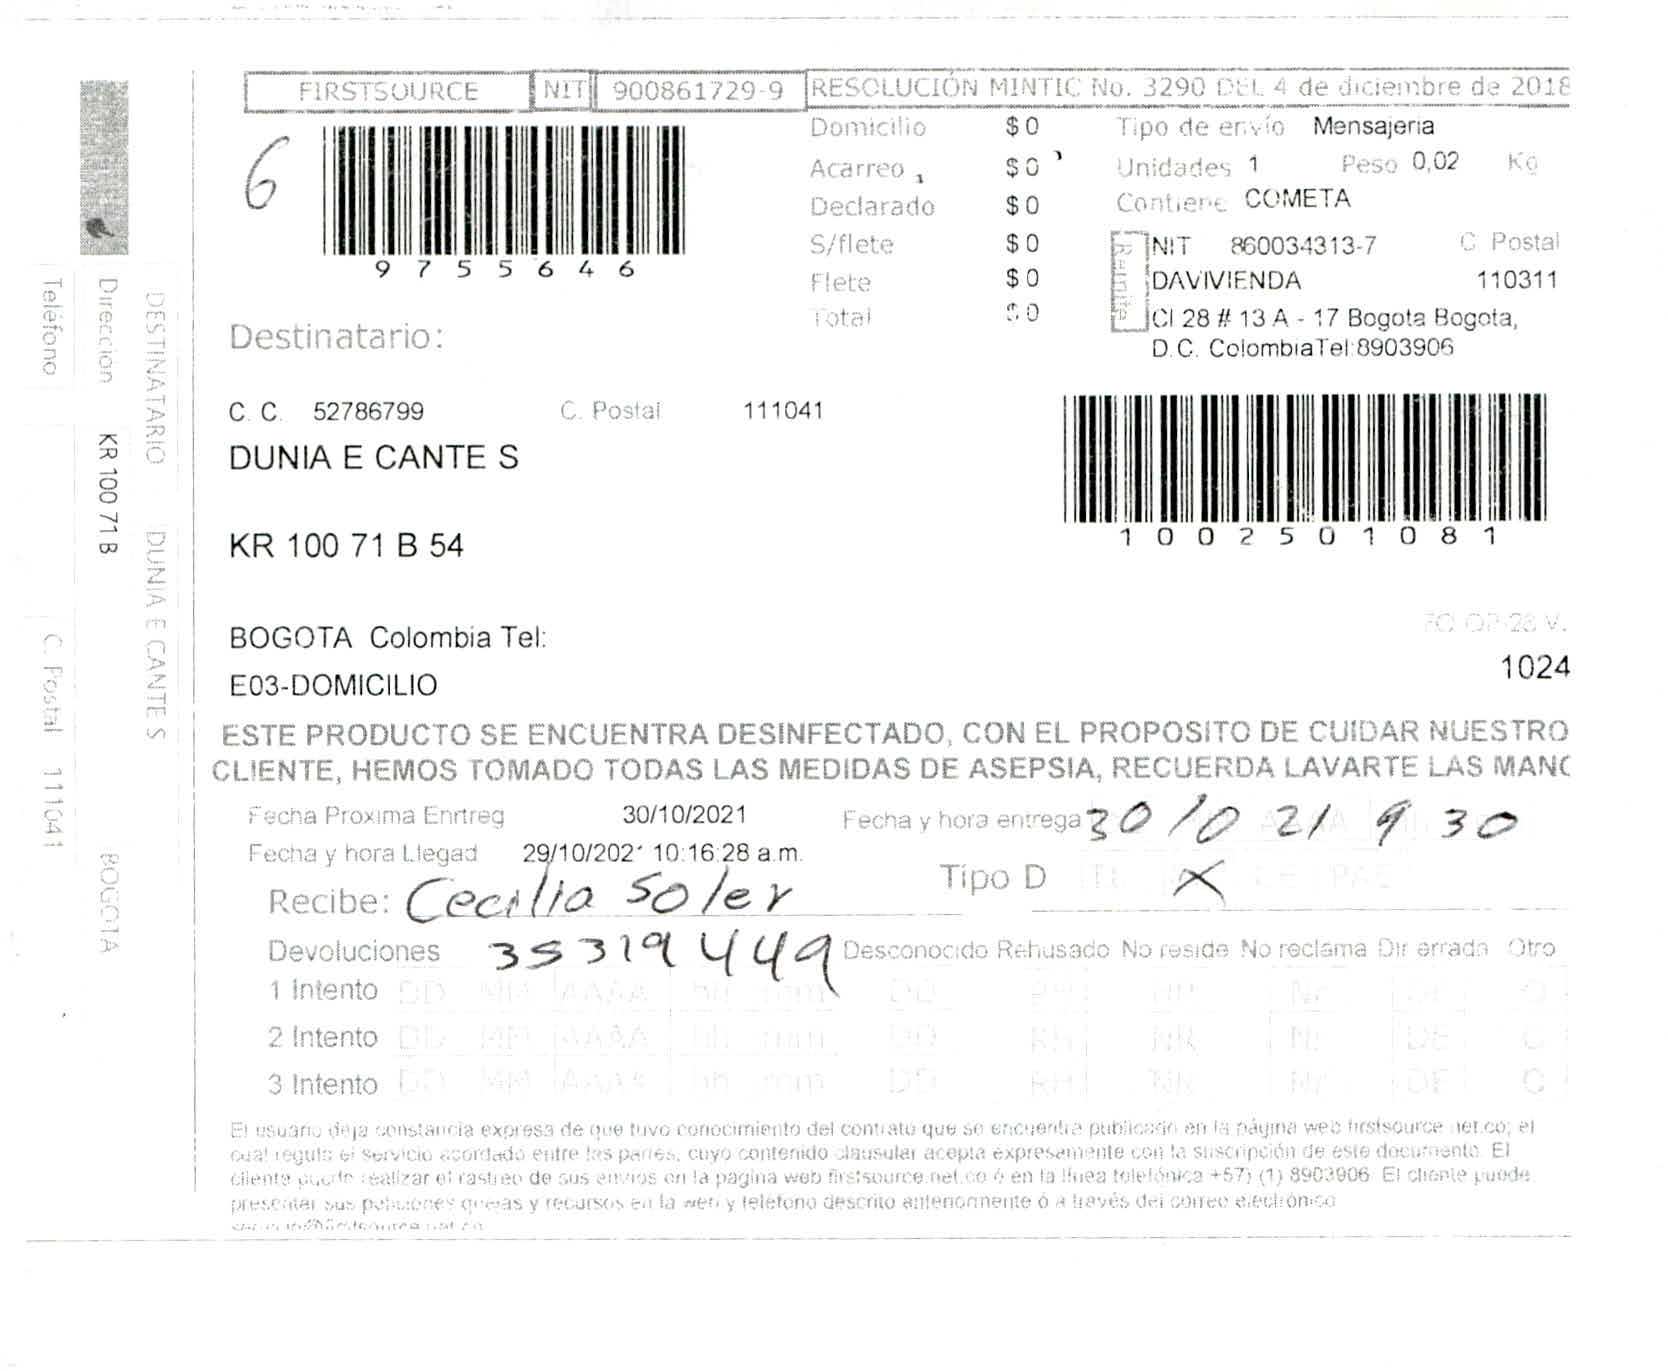 FIRSTSOURCE NIT 900861729-9 RESOLUCIÓN MINTIC No. 3290 DEL 4 de diciembre de 2018
6
97555646
Domicilio $0
Acarreo $0
Declarado $0
S/flete $0
Flete $0
Total $0
Tipo de envío Mensajeria
Unidades 1 Peso 0,02 Kg
Contiene COMETA
Remite
NIT 860034313-7 C. Postal
DAVIVIENDA 110311
Cl 28 # 13 A - 17 Bogota Bogota,
D.C. ColombiaTel:8903906
Destinatario:
C. C. 52786799 C. Postal 111041
DUNIA E CANTE S
1002501081
KR 100 71 B 54
BOGOTA Colombia Tel:
E03-DOMICILIO
FO OP-28 V.
1024
ESTE PRODUCTO SE ENCUENTRA DESINFECTADO, CON EL PROPOSITO DE CUIDAR NUESTRO
CLIENTE, HEMOS TOMADO TODAS LAS MEDIDAS DE ASEPSIA, RECUERDA LAVARTE LAS MANO
Fecha Proxima Enrtreg 30/10/2021 Fecha y hora entrega 30/10 21 9 30
Fecha y hora Llegad 29/10/202' 10:16:28 a.m.
Tipo D X
Recibe: Cecilia Soler
35319449
Devoluciones Desconocido Rehusado No reside No reclama Dir errada Otro
1 Intento DD MM AAAA hh mm DD RH NR Nr DE O
2 Intento DD MM AAAA hh mm DD RH NR Nr DE O
3 Intento DD MM AAAA hh mm DD RH NR Nr DE O
El usuario deja constancia expresa de que tuvo conocimiento del contrato que se encuentra publicado en la página web firstsource.net.co; el
cual regula el servicio acordado entre las partes, cuyo contenido clausular acepta expresamente con la suscripción de este documento. El
cliente puede realizar el rastreo de sus envios en la pagina web firstsource.net.co ó en la línea telefónica +57) (1) 8903906. El cliente puede
presentar sus peticiones quejas y recursos en la web y teléfono descrito anteriormente ó a través del correo electrónico
DESTINATARIO DUNIA E CANTE S
Dirección KR 100 71 B BOGOTA
Teléfono C. Postal 111041